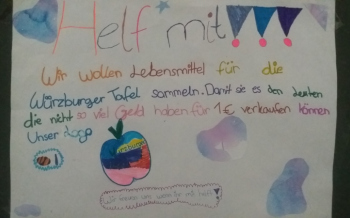 Helf mit!!!
Wir wollen Lebensmittel für die
Würzburger Tafel sammeln. Damit sie es den leuten
die nicht so viel Geld haben für 1€ verkaufen können
Unser Logo